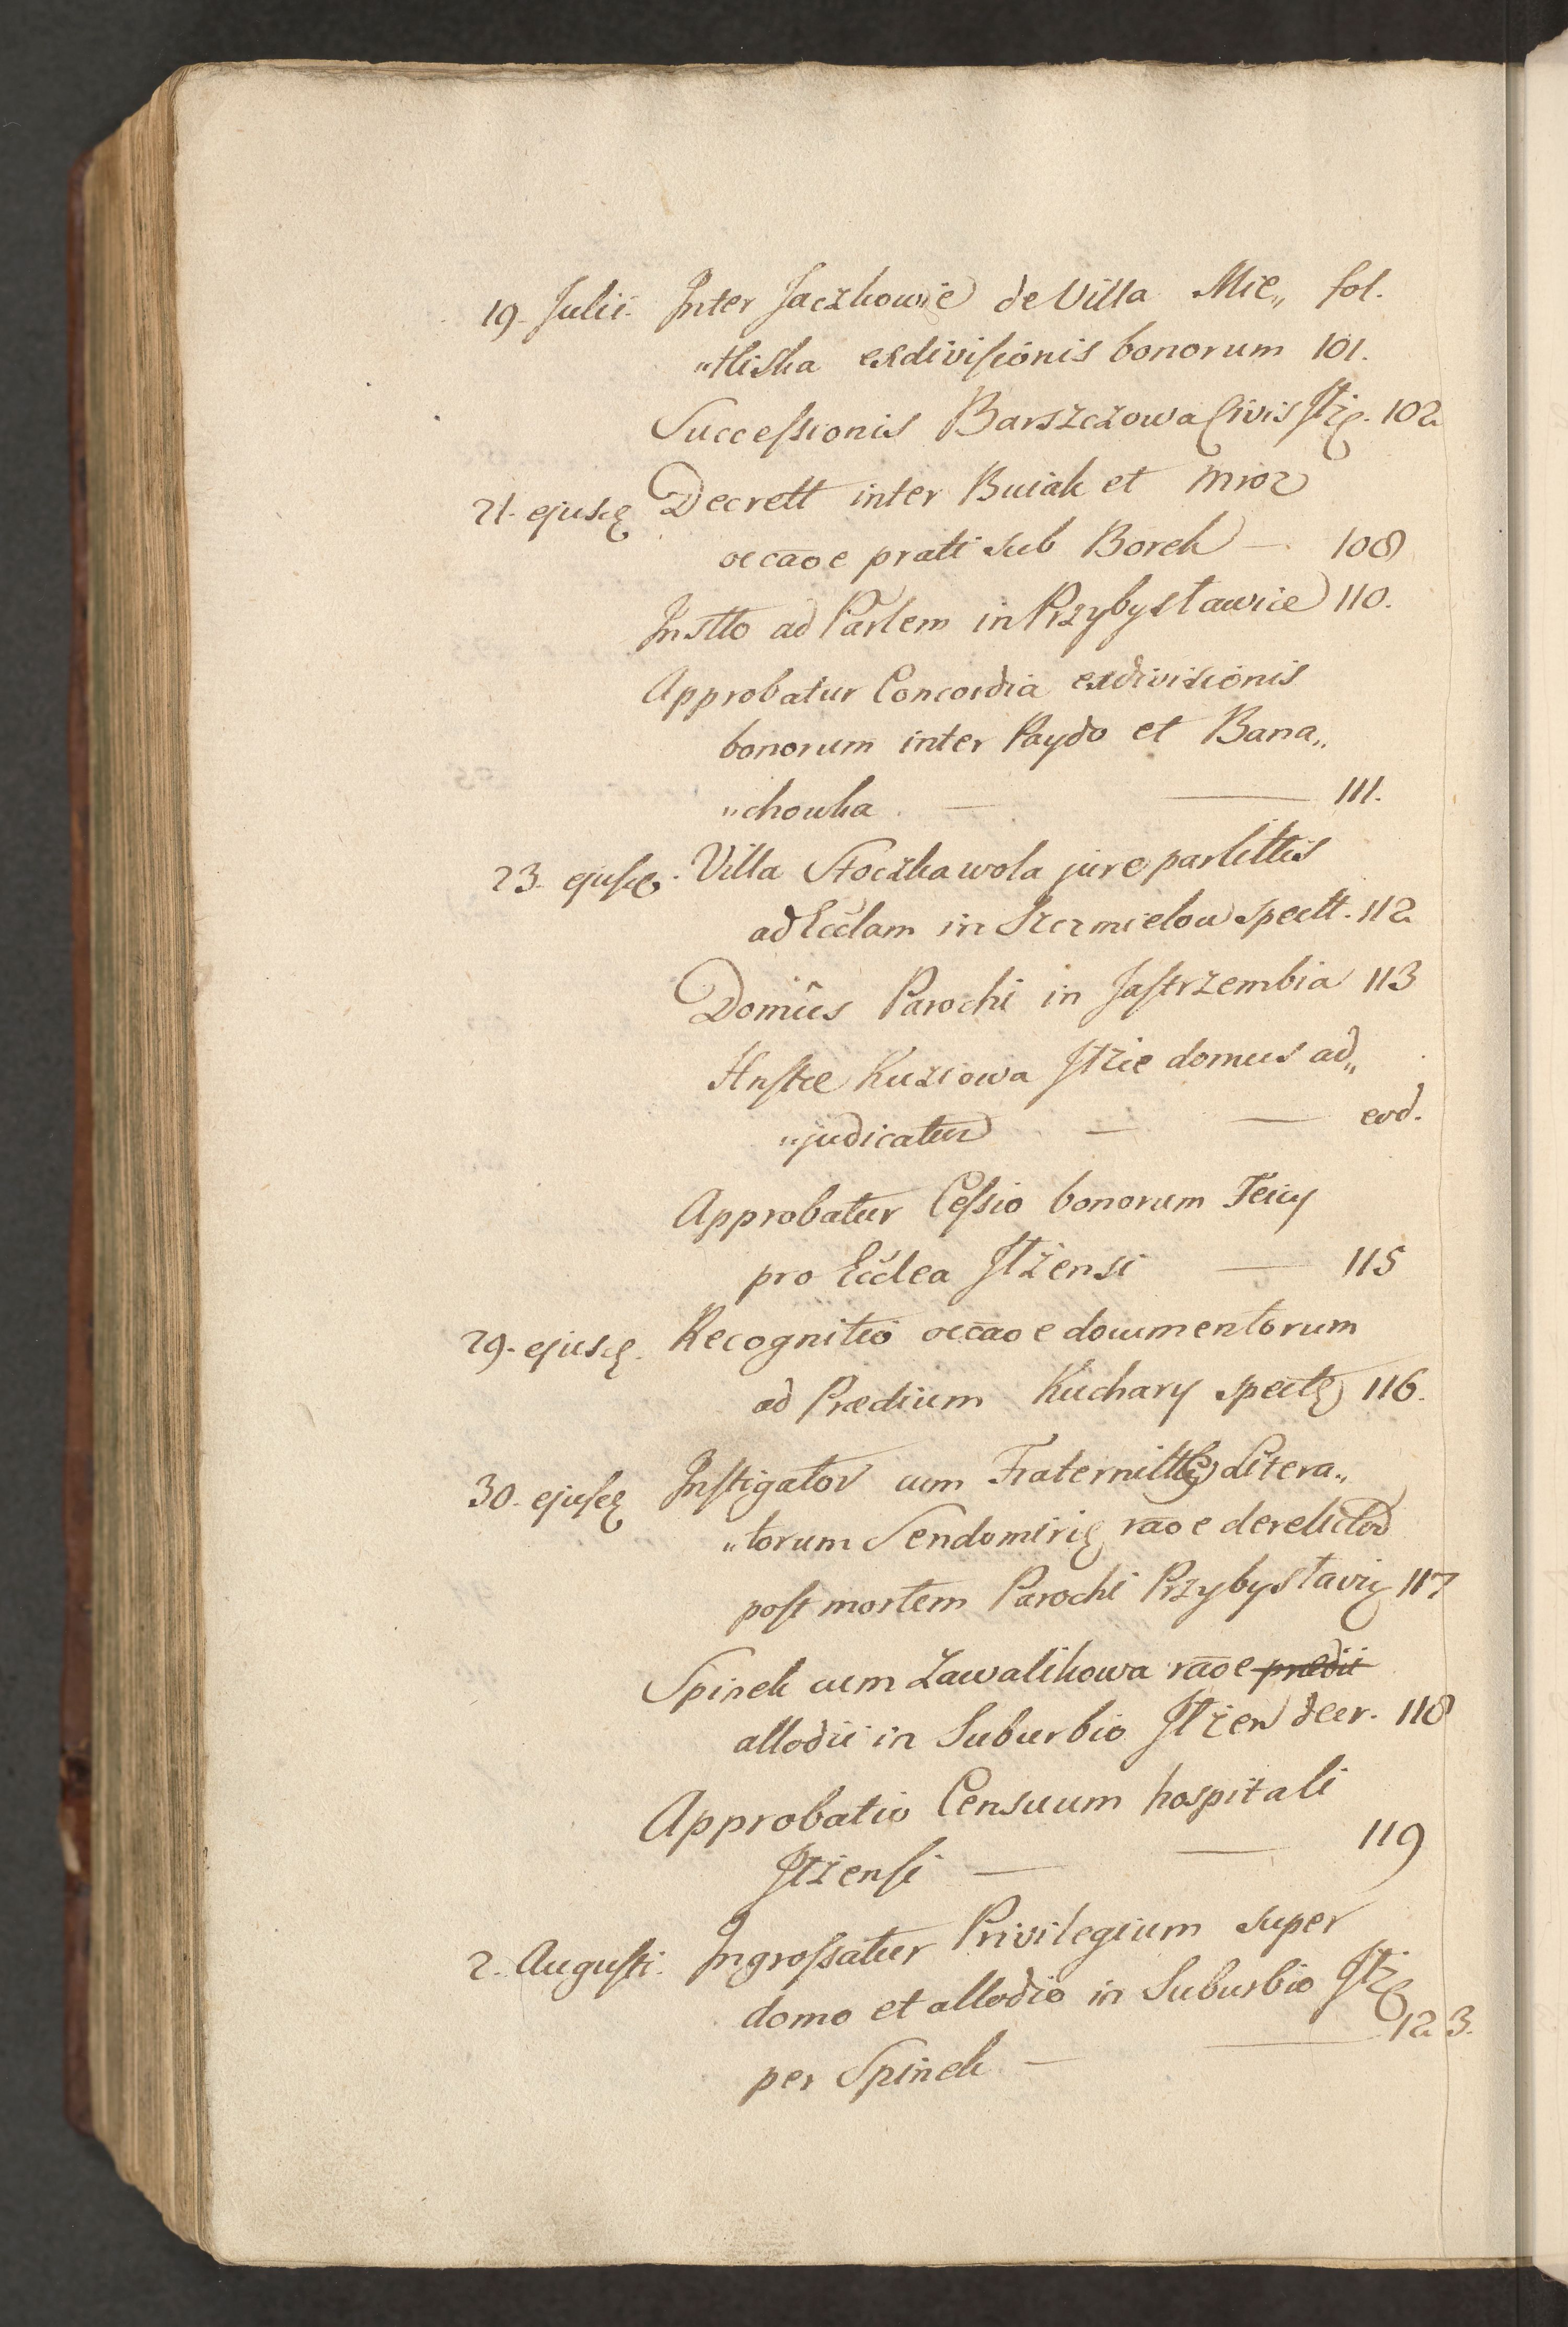 19. Julii. Inter Jaczkowie de Villa Mie„ fol.
„tliska exdivisionis bonorum 101.
Successionis Barszczowa Civis Iłż. 102
21. ejusd. Decrett inter Buiak et Mroz
occaõe prati sub Borek — 108
Instto ad Partem in Przybysławice 110.
Approbatur Concordia exdivisionis
bonorum inter Paydo et Bana„
„chowka — — 111.
23. ejusd. Villa Stoczka wola jure partittis
ad Ecclam in Skrzmielow spectt. 112
Domûs Parochi in Jastrzembia 113
Kuziowa Iłżie domus ad„
„judicatur — — eod.
Approbatur Cessio bonorum Teicy
pro Ecclea Iłżensi — 115
29. ejusd. Recognitio occaõe documentorum
ad Prædium Kuchary spectt. 116.
30. ejusd. Instigator cum Fraternitt. Litera„
„torum Sendomiri raõe derelictor
post mortem Parochi Przybysłavi 117
Spinek cum Zawalikowa raõe prædii
allodii in Suburbio Iłżen decr. 118
Approbatio Censuum hospitali
Iłżensi — — 119
2. Augusti. Ingrossatur Privilegium super
domo et allodio in Suburbio Iłż
per Spinek — — 123.